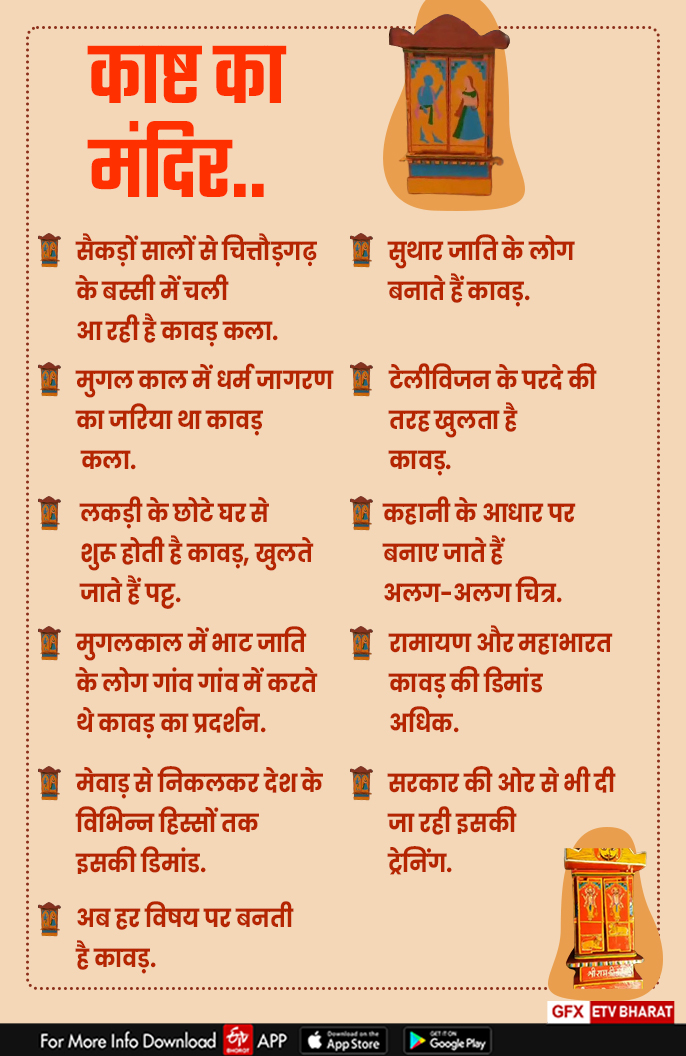 काष्ट का
मंदिर..
सैकड़ों सालों से चित्तौड़गढ़
के बस्सी में चली
आ रही है कावड़ कला.
मुगल काल में धर्म जागरण
का जरिया था कावड़
कला.
लकड़ी के छोटे घर से
शुरू होती है कावड़, खुलते
जाते हैं पट्ट.
मुगलकाल में भाट जाति
के लोग गांव गांव में करते
थे कावड़ का प्रदर्शन.
मेवाड़ से निकलकर देश के
विभिन्न हिस्सों तक
इसकी डिमांड.
अब हर विषय पर बनती
है कावड़.
सुथार जाति के लोग
बनाते हैं कावड़.
टेलीविजन के परदे की
तरह खुलता है
कावड़.
कहानी के आधार पर
बनाए जाते हैं
अलग-अलग चित्र.
रामायण और महाभारत
कावड़ की डिमांड
अधिक.
सरकार की ओर से भी दी
जा रही इसकी
ट्रेनिंग.
GFX ETV BHARAT
For More Info Download ETV BHARAT APP
Download on the App Store
GET IT ON Google Play